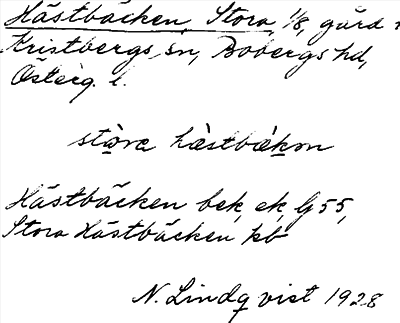 Hästbäcken, Stora, 1/8, gård
Kristbergs sn, Bobergs hd,
Österg. l.
stòra hàstbækən
Hästbäcken bek, ek, G 55,
Stora Hästbäcken kb
N. Lindqvist 1928